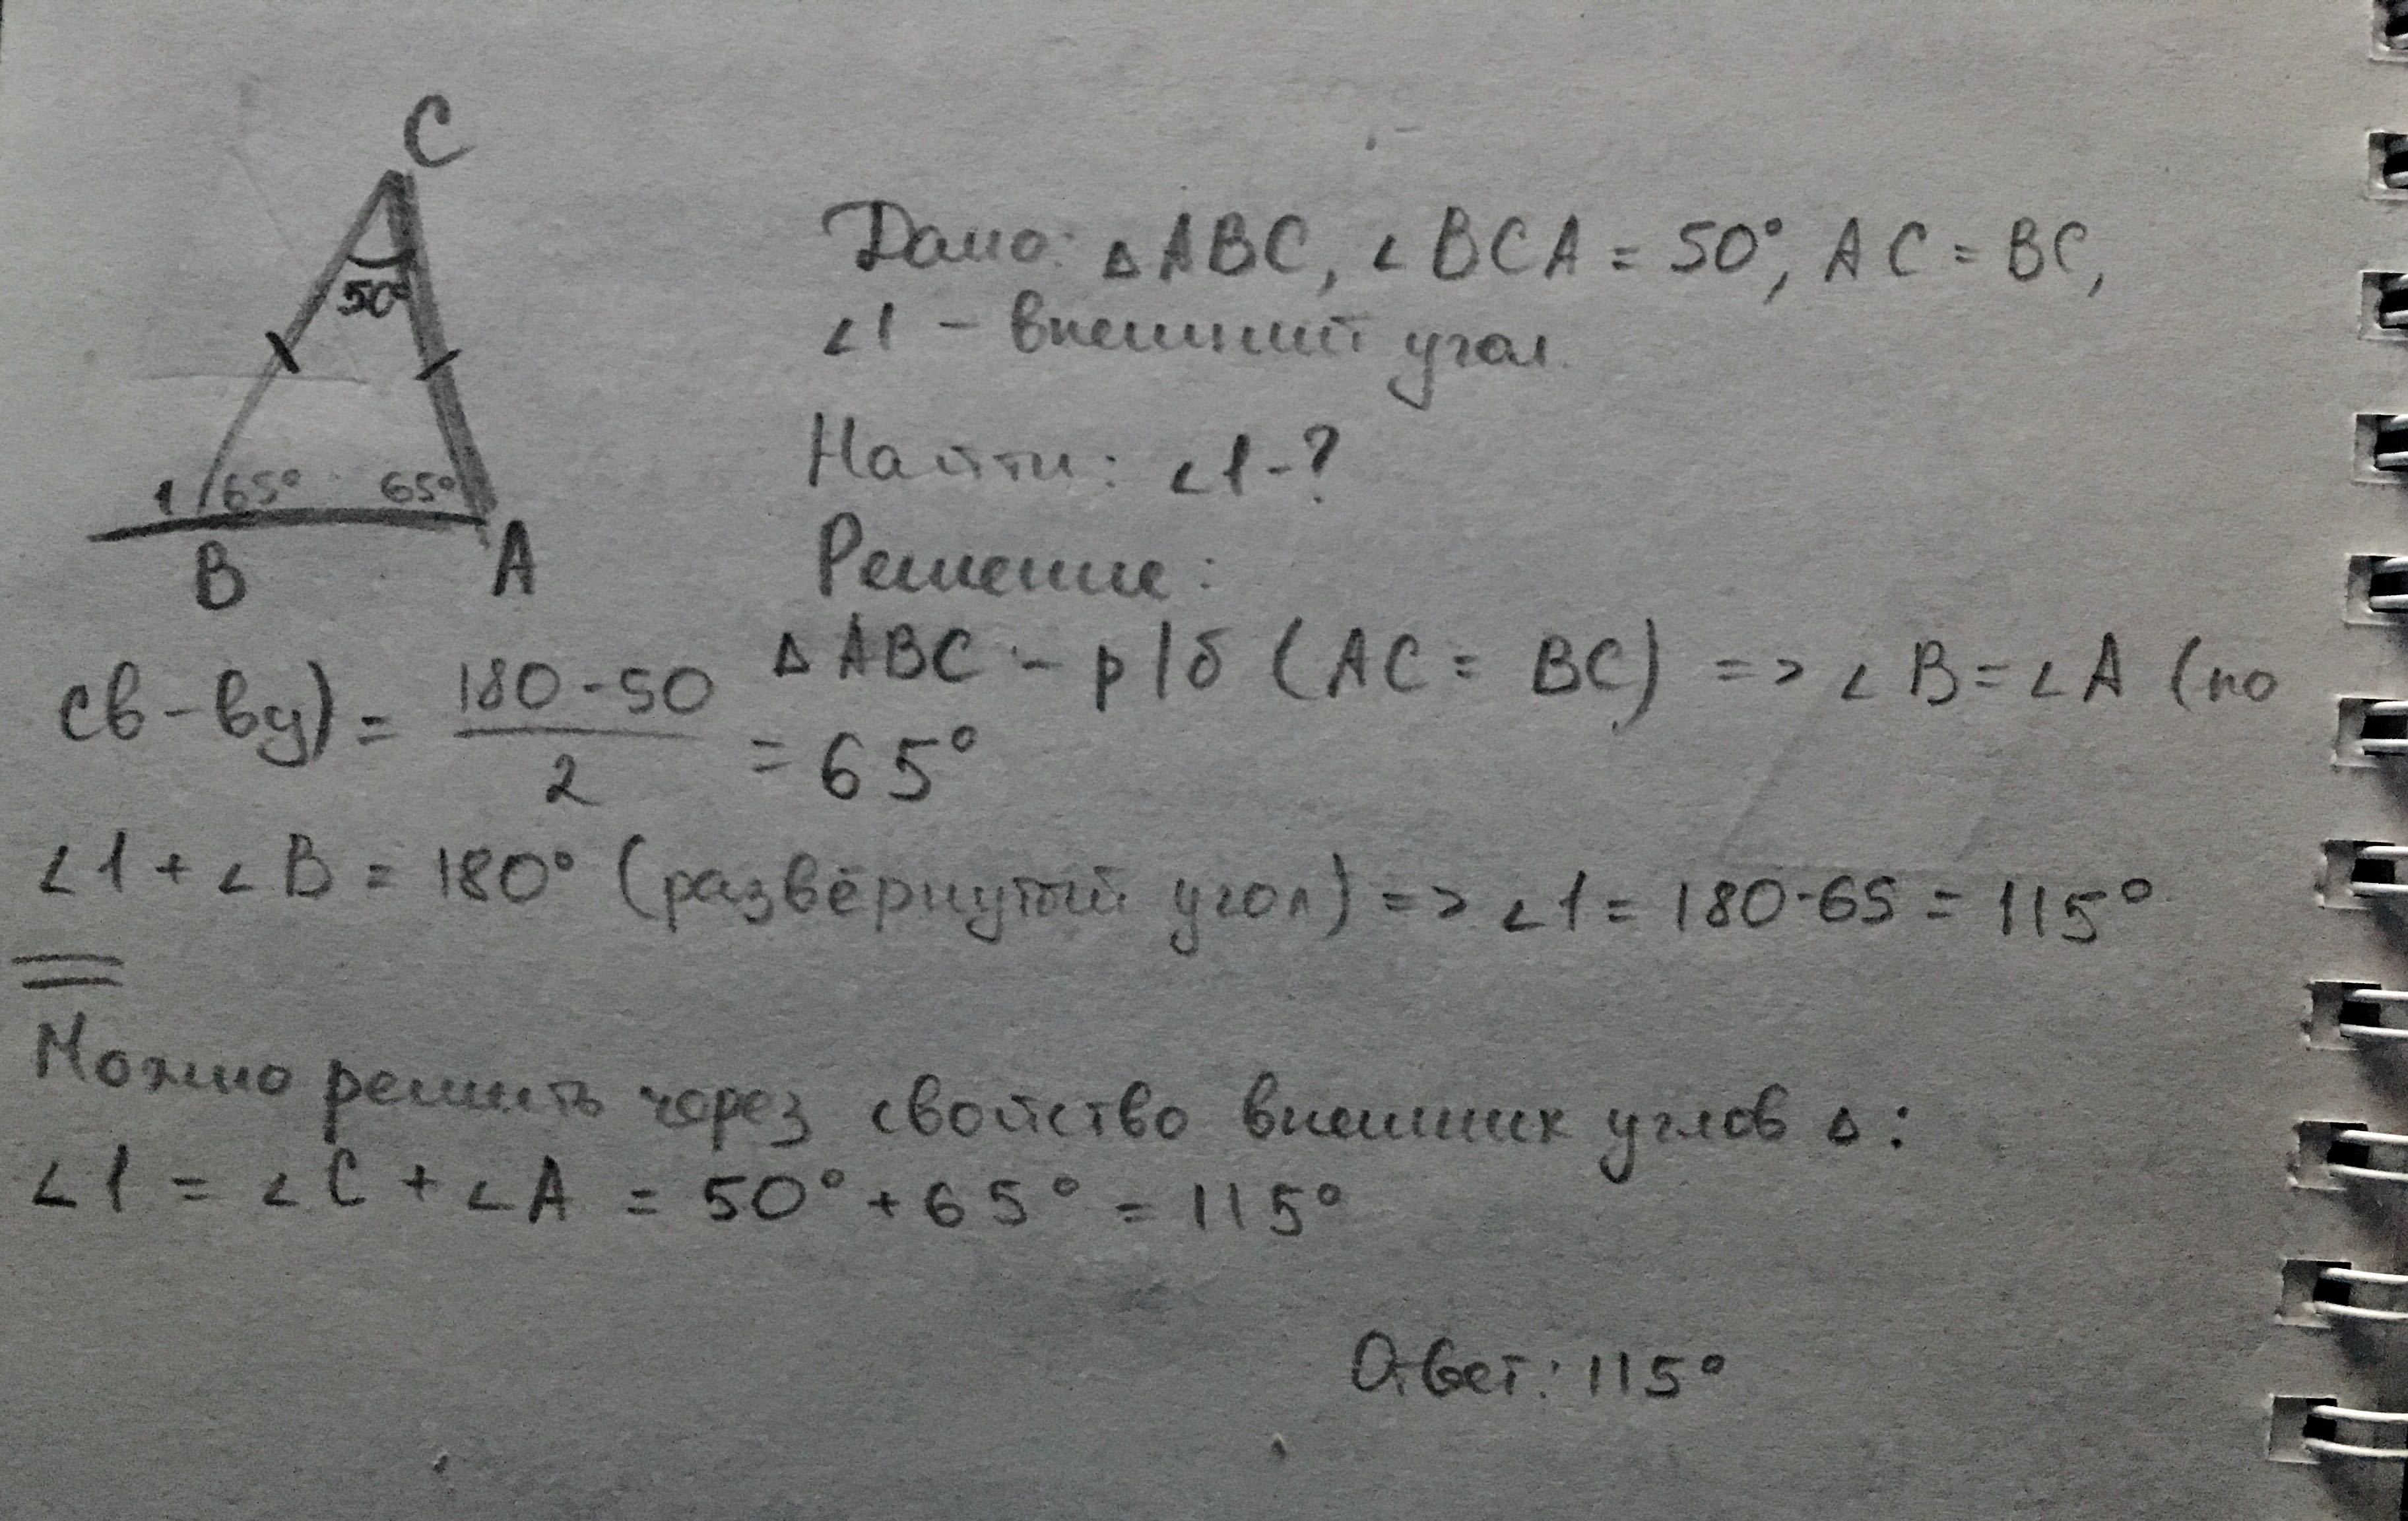 C
50°
1 65° 65°
B A
Дано: ΔABC, ∠BCA = 50°, AC = BC,
∠1 – внешний угол.
Найти: ∠1-?
Решение:
ΔABC – р/б (AC = BC) => ∠B = ∠A (по
св-ву) = 180-50 / 2 = 65°
∠1 + ∠B = 180° (развёрнутый угол) => ∠1 = 180-65 = 115°
Можно решить через свойство внешних углов Δ:
∠1 = ∠C + ∠A = 50° + 65° = 115°
Ответ: 115°